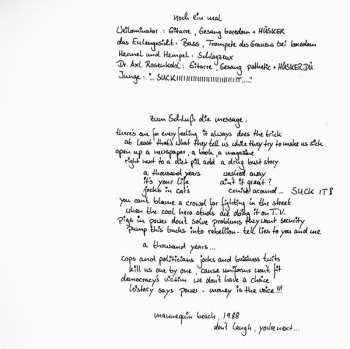 noch ein mal
Weilaminator : Gitarre, Gesang boredom + HÜSKER
das Eulengesicht : Bass, Trompete des Grauens bei boredom
Hermel und Hempel : Schlagzeux
Dr. Axl Rosenkohl : Gitarre, Gesang pathetic + HÜSKER DÜ
Junge : "... SUCK!!!!!!!!!!!!!!!!!!!!!!!IT....."
zum Schluß die message.
there's one for every feeling it always does the trick
at least that's what they tell us while they try to make us sick
open up a newspaper, a book, a magazine
right next to a diet pill add a drug bust story
a thousand years washed away
it's your life ain't it great?
jocks in cars cruise around... SUCK IT!
you can't blame a crowd for fighting in the street
when the cool hero studs are doing it on T.V.
pigs in power don't solve problems they want security
pump this bucks into rebellion - tell lies to you and me
a thousand years...
cops and politicians jocks and business twits
kill us one by one, 'cause uniforms won't fit
democracy's victim we don't have a choice
history says power - money is the voice!!!
mannequin beach, 1988
don't laugh, you're next...